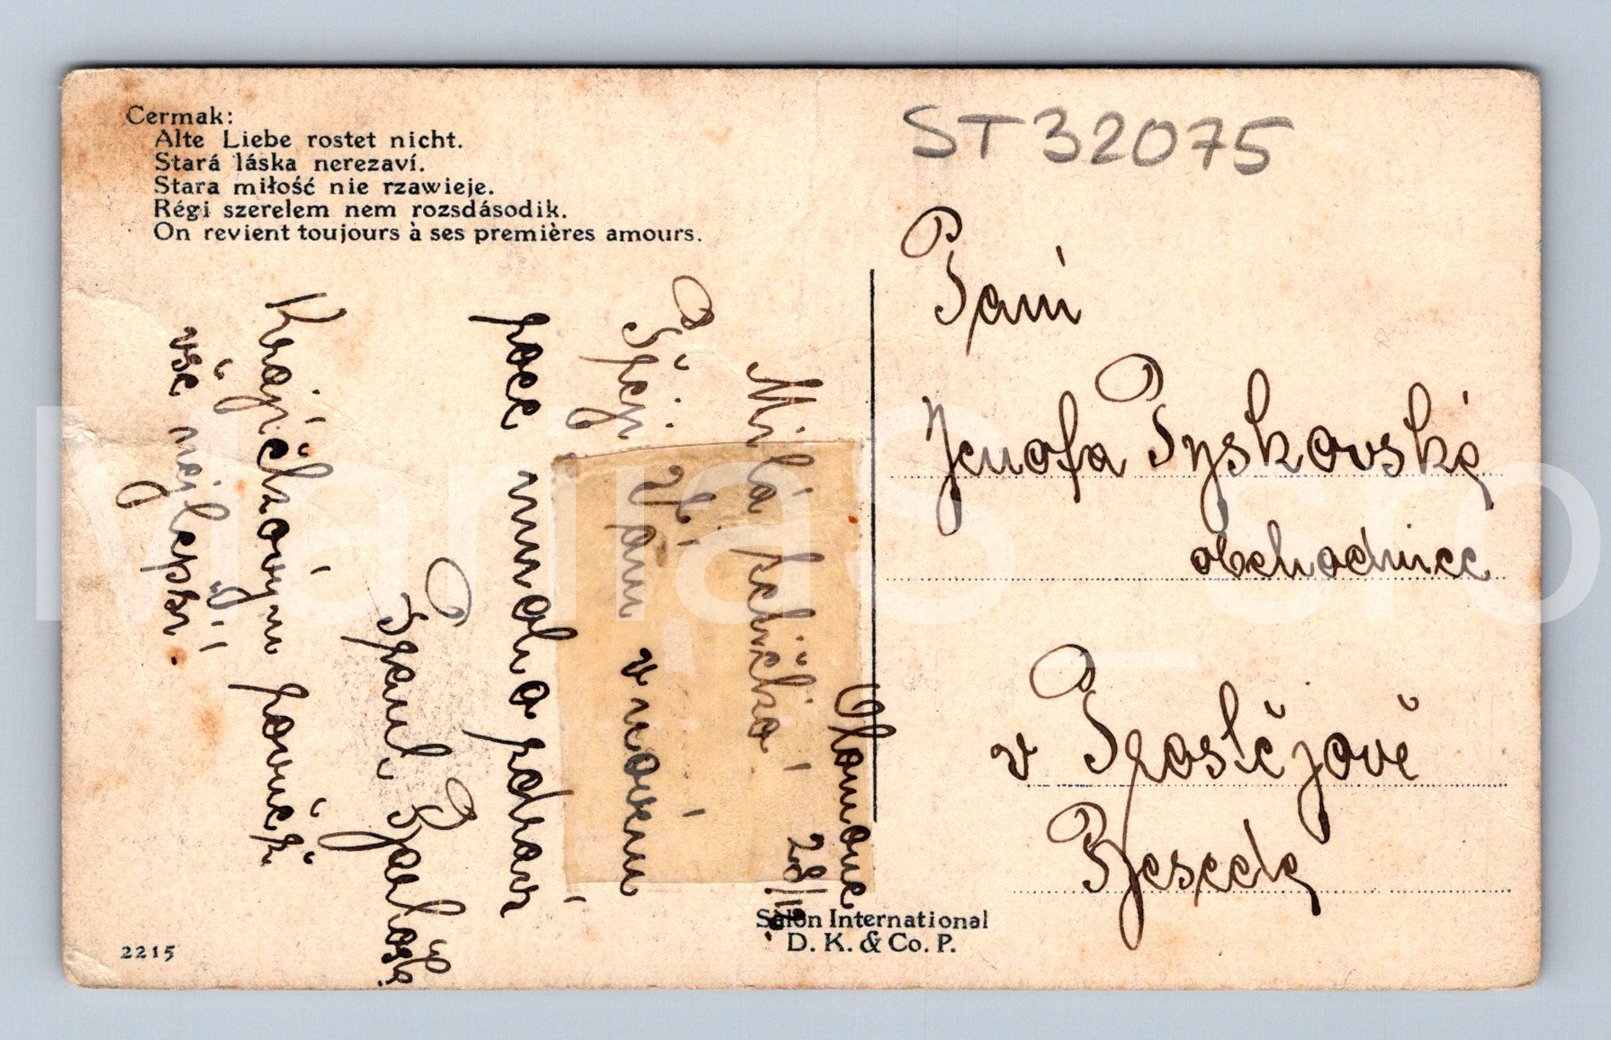 Cermak:
Alte Liebe rostet nicht.
Stará láska nerezaví.
Stara miłość nie rzawieje.
Régi szerelem nem rozsdásodik.
On revient toujours à ses premières amours.
ST32075
Paní
Jenofa Pyskovská
obchodnice
v Prostějově
Besedy
Olomouc
28/12.
Milá
Přeji Vám v novém
roce mnoho zdraví
Krejčíkovým rovněž
vše nejlepší.
Salon International
D. K. & Co. P.
2215